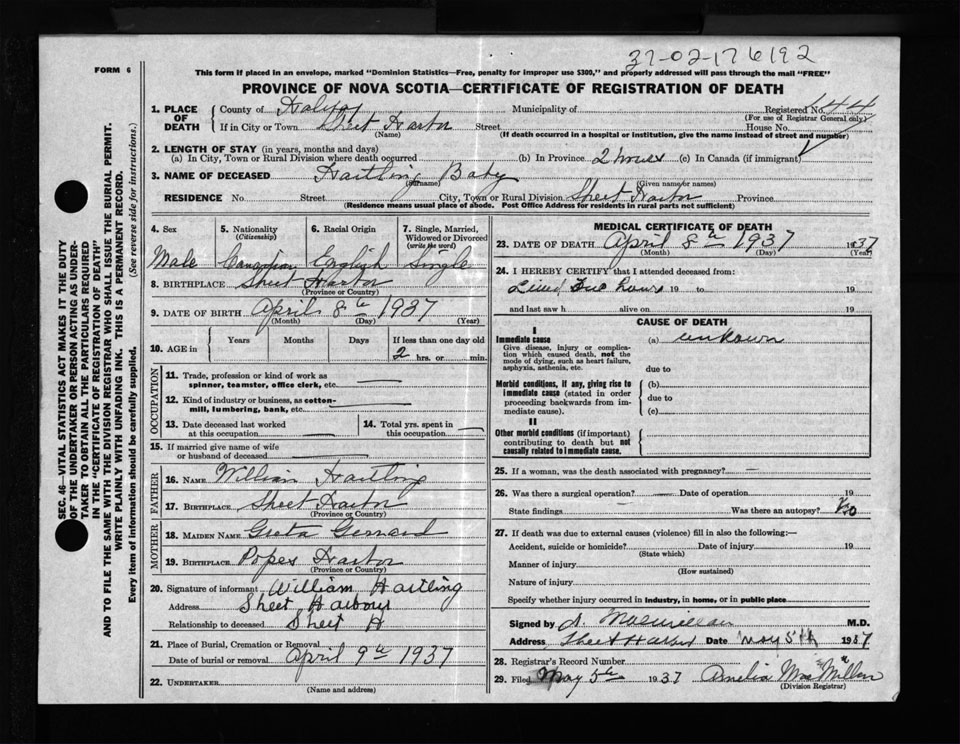 37-02-176192
FORM 6
This form if placed in an envelope, marked "Dominion Statistics—Free, penalty for improper use $300," and properly addressed will pass through the mail "FREE"
PROVINCE OF NOVA SCOTIA—CERTIFICATE OF REGISTRATION OF DEATH
SEC. 46—VITAL STATISTICS ACT MAKES IT THE DUTY
OF THE UNDERTAKER OR PERSON ACTING AS UNDER-
TAKER TO OBTAIN ALL THE PARTICULARS REQUIRED
IN THE "CERTIFICATE OF REGISTRATION OF DEATH"
AND TO FILE THE SAME WITH THE DIVISION REGISTRAR WHO SHALL ISSUE THE BURIAL PERMIT.
WRITE PLAINLY WITH UNFADING INK. THIS IS A PERMANENT RECORD.
Every item of information should be carefully supplied. (See reverse side for instructions.)
1. PLACE OF DEATH County of Halifax Municipality of Registered No. 144
(For use of Registrar General only)
If in City or Town Sheet Harbor Street House No.
(Name) (If death occurred in a hospital or institution, give the name instead of street and number)
2. LENGTH OF STAY (in years, months and days)
(a) In City, Town or Rural Division where death occurred (b) In Province 2 hours (c) In Canada (if immigrant)
3. NAME OF DECEASED Hartling Baby
(Surname) (Given name or names)
RESIDENCE No. Street City, Town or Rural Division Sheet Harbor Province
(Residence means usual place of abode. Post Office Address for residents in rural parts not sufficient)
4. Sex 5. Nationality (Citizenship) 6. Racial Origin 7. Single, Married, Widowed or Divorced (write the word)
Male Canadian English Single
8. BIRTHPLACE Sheet Harbor
(Province or Country)
9. DATE OF BIRTH April 8th 1937
(Month) (Day) (Year)
10. AGE in Years Months Days If less than one day old
2 hrs. or min.
OCCUPATION
11. Trade, profession or kind of work as
spinner, teamster, office clerk, etc.
12. Kind of industry or business, as cotton-
mill, lumbering, bank, etc.
13. Date deceased last worked
at this occupation
14. Total yrs. spent in
this occupation
15. If married give name of wife
or husband of deceased
FATHER
16. NAME William Hartling
17. BIRTHPLACE Sheet Harbor
(Province or Country)
MOTHER
18. MAIDEN NAME Greta Gerrard
19. BIRTHPLACE Popes Harbor
(Province or Country)
20. Signature of informant William Hartling
Address Sheet Harbour
Relationship to deceased Sheet H
21. Place of Burial, Cremation or Removal
Date of burial or removal April 9th 1937
22. UNDERTAKER
(Name and address)
MEDICAL CERTIFICATE OF DEATH
23. DATE OF DEATH April 8th 1937 1937
(Month) (Day) (Year)
24. I HEREBY CERTIFY that I attended deceased from:
Lived two hours 19 to 19
and last saw h alive on 19
CAUSE OF DEATH
I
Immediate cause (a) unkown
Give disease, injury or complica-
tion which caused death, not the
mode of dying, such as heart failure,
asphyxia, asthenia, etc.
due to
Morbid conditions, if any, giving rise to (b)
immediate cause (stated in order due to
proceeding backwards from im- (c)
mediate cause).
II
Other morbid conditions (if important)
contributing to death but not
causally related to immediate cause.
25. If a woman, was the death associated with pregnancy?
26. Was there a surgical operation? Date of operation 19
State findings Was there an autopsy? No
27. If death was due to external causes (violence) fill in also the following:—
Accident, suicide or homicide? Date of injury 19
(State which)
Manner of injury
(How sustained)
Nature of injury
Specify whether injury occurred in industry, in home, or in public place
Signed by Macmillan M.D.
Address Sheet Harbor Date May 5th 1937
28. Registrar's Record Number
29. Filed May 5th 1937 Amelia MacMillan
(Division Registrar)